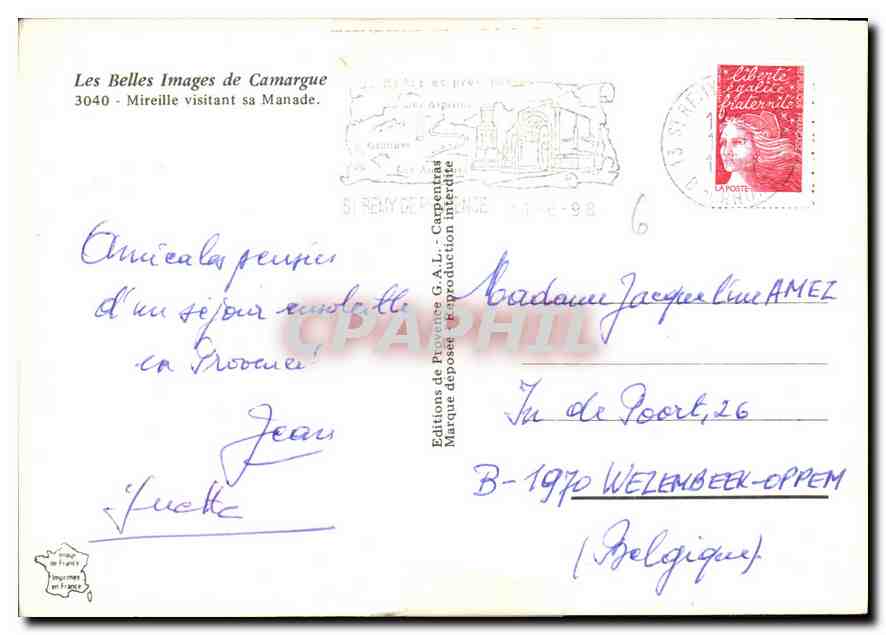 Les Belles Images de Camargue
3040 - Mireille visitant sa Manade.
ST REMY DE PROVENCE
liberté
égalité
fraternité
LA POSTE
6
Amicales pensées
d'un séjour ensoleillé
en Provence!
Jean
Yvette
Editions de Provence G.A.L. - Carpentras
Marque déposée - Reproduction interdite
CPAPHIL
Madame Jacqueline AMEZ
In de Poort, 26
B-1970 WEZEMBEEK-OPPEM
(Belgique).
Image
de France
Imprimée
en France